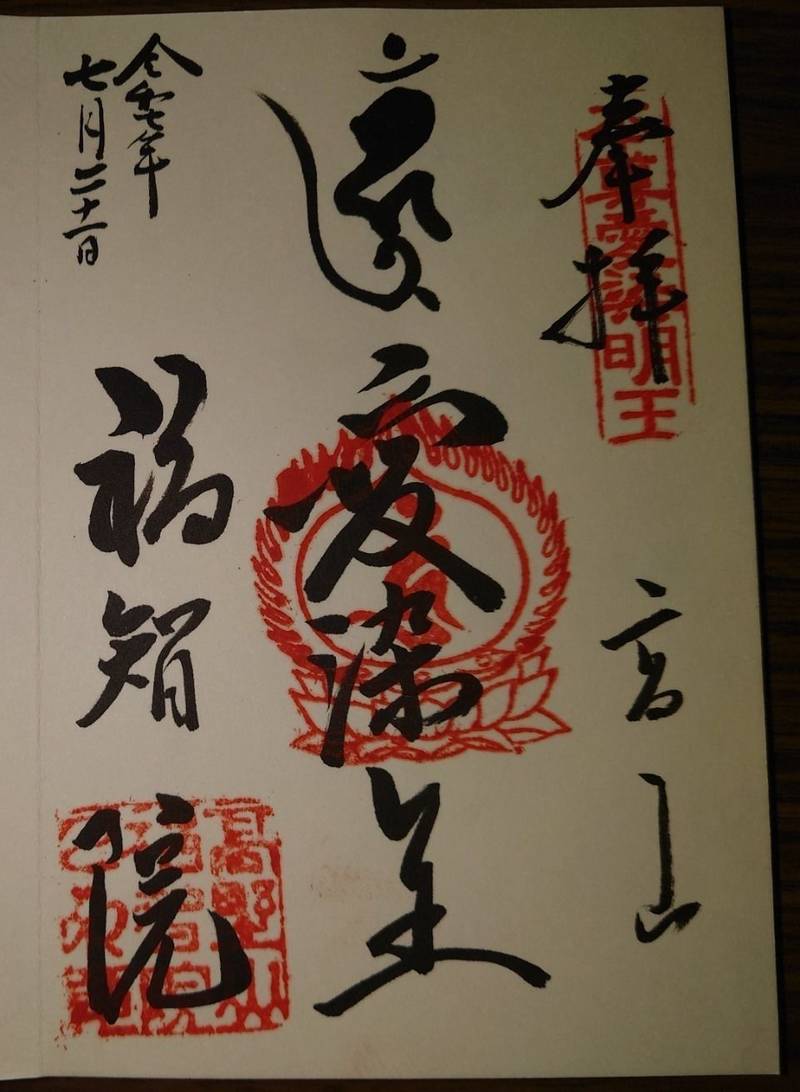 奉拝
愛染明王
高山
愛染
令和七年
七月二十一日
福智院
高野山
福智院